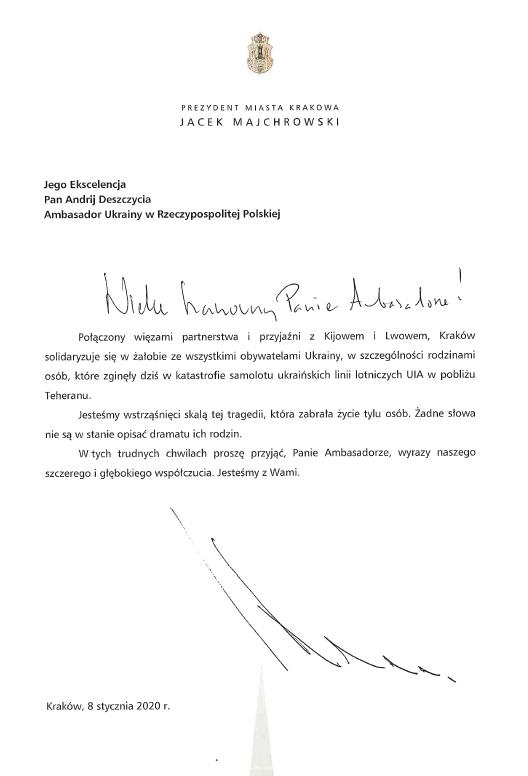 PREZYDENT MIASTA KRAKOWA
JACEK MAJCHROWSKI
Jego Ekscelencja
Pan Andrij Deszczycia
Ambasador Ukrainy w Rzeczypospolitej Polskiej
Wielce Szanowny Panie Ambasadorze!
Połączony więzami partnerstwa i przyjaźni z Kijowem i Lwowem, Kraków
solidaryzuje się w żałobie ze wszystkimi obywatelami Ukrainy, w szczególności rodzinami
osób, które zginęły dziś w katastrofie samolotu ukraińskich linii lotniczych UIA w pobliżu
Teheranu.
Jesteśmy wstrząśnięci skalą tej tragedii, która zabrała życie tylu osób. Żadne słowa
nie są w stanie opisać dramatu ich rodzin.
W tych trudnych chwilach proszę przyjąć, Panie Ambasadorze, wyrazy naszego
szczerego i głębokiego współczucia. Jesteśmy z Wami.
Kraków, 8 stycznia 2020 r.